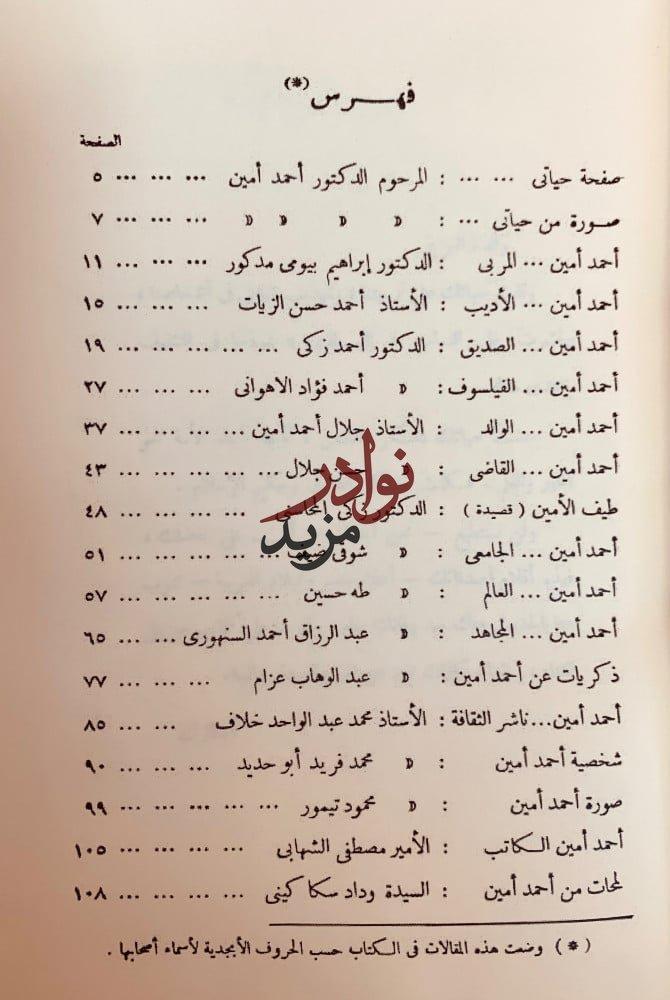 فهرس (*)
الصفحة
صفحة حياتى ... ... : المرحوم الدكتور أحمد أمين ... ... ... ٥
صورة من حياتى ... : » » » » ... ... ... ٧
أحمد أمين ... المربى : الدكتور إبراهيم بيومى مدكور ... ... ١١
أحمد أمين ... الأديب : الأستاذ أحمد حسن الزيات ... ... ... ١٥
أحمد أمين ... الصديق : الدكتور أحمد زكى ... ... ... ... ... ١٩
أحمد أمين ... الفيلسوف : » أحمد فؤاد الاهوانى ... ... ... ٢٧
أحمد أمين ... الوالد : الأستاذ جلال أحمد أمين ... ... ... ... ٣٧
أحمد أمين ... القاضى : » حسن جلال ... ... ... ... ... ٤٣
طيف الأمين ( قصيدة ) : الدكتور زكى المحاسنى ... ... ... ... ٤٨
أحمد أمين ... الجامعى : » شوقى ضيف ... ... ... ... ٥١
أحمد أمين ... العالم : » طه حسين ... ... ... ... ... ٥٧
أحمد أمين ... المجاهد : » عبد الرزاق أحمد السنهورى ... ... ... ٦٥
ذكريات عن أحمد أمين : » عبد الوهاب عزام ... ... ... ٧٧
أحمد أمين... ناشر الثقافة : الأستاذ محمد عبد الواحد خلاف ... ... ٨٥
شخصية أحمد أمين : » محمد فريد أبو حديد ... ... ... ٩٠
صورة أحمد أمين : » محمود تيمور ... ... ... ... ... ٩٩
أحمد أمين الكاتب : الأمير مصطفى الشهابى ... ... ... ... ١٠٥
لمحات من أحمد أمين : السيدة وداد سكاكينى ... ... ... ... ١٠٨
( * ) وضعت هذه المقالات فى الكتاب حسب الحروف الأبجدية لأسماء أصحابها .
نوادر
مزيد